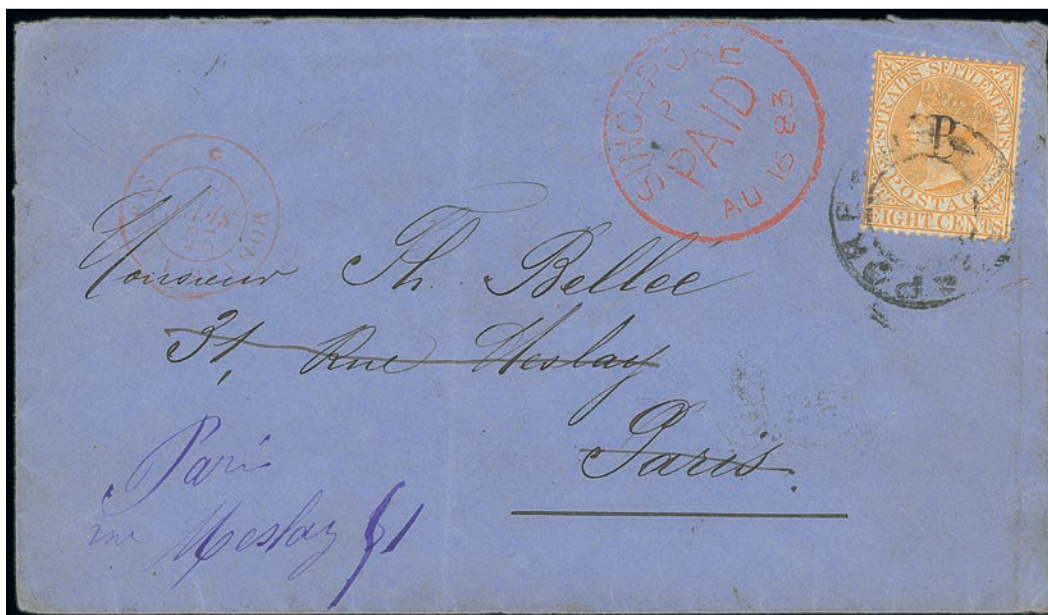 SINGAPORE
P
PAID
AU 16 83
STRAITS SETTLEMENTS
POSTAGE
EIGHT CENTS
Monsieur Th. Bellee
31, Rue Meslay
Paris.
Paris
rue Meslay 61